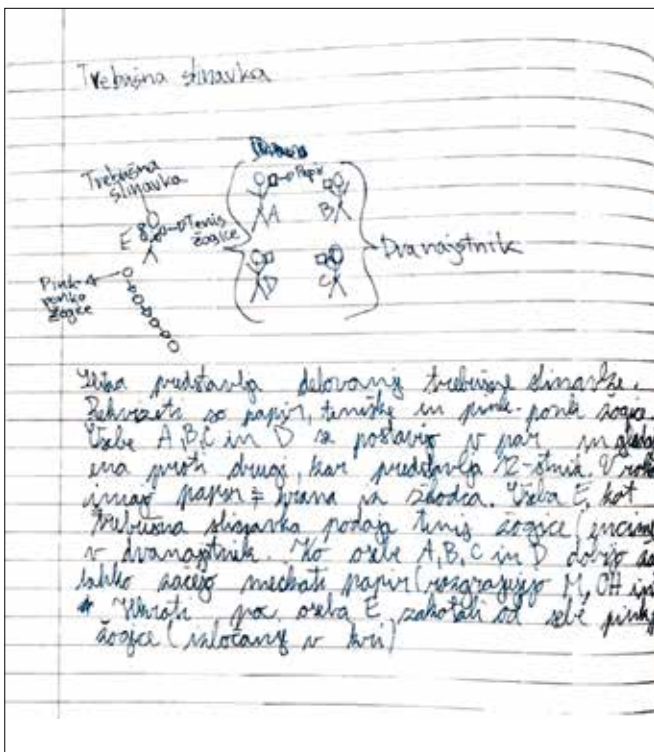 Trebušna slinavka
Trebušna
slinavka
E
Tenis
žogice
Papir
A
B
D
C
Dvanajstnik
Pink
ponk
žogice
predstavlja delovanje trebušne slinavke.
Rekviziti so papir, teniške in pink-ponk žogice.
Osebe A, B, C in D se postavijo v par in gledajo
ena proti drugi, kar predstavlja 12-stnik. V roki
imajo papir = hrana iz želodca. Oseba E, kot
trebušna slinavka podaja tenis žogice (encime
v dvanajstnik. Ko osebe A, B, C in D dobijo
lahko začejo mečkati papir (razgrajujejo M, OH
Hkrati pa oseba E zakotali od sebe
žogice (izločanje v kri)